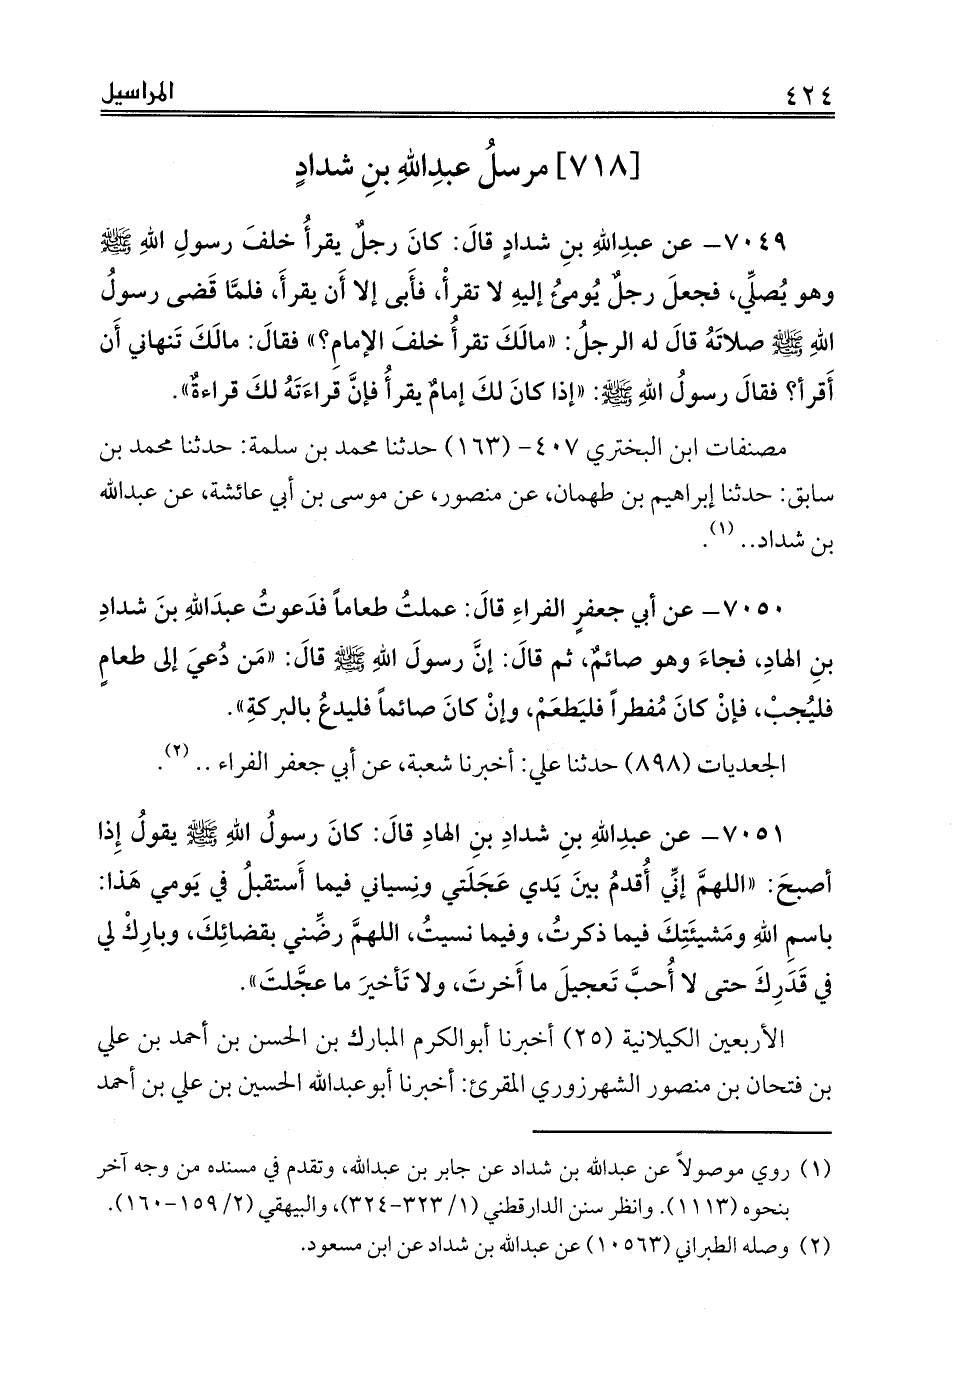 ٤٢٤ المراسيل
[٧١٨] مرسلُ عبدِاللهِ بنِ شدادٍ
٧٠٤٩– عن عبدِاللهِ بنِ شدادٍ قالَ: كانَ رجلٌ يقرأُ خلفَ رسولِ اللهِ ﷺ
وهو يُصلِّي، فجعلَ رجلٌ يُومئُ إليهِ لا تقرأْ، فأَبى إلا أَن يقرأَ، فلمَّا قَضى رسولُ
اللهِ ﷺ صلاتَهُ قالَ له الرجلُ: «مالَكَ تقرأُ خلفَ الإمامِ؟» فقالَ: مالَكَ تَنهاني أَن
أَقرأَ؟ فقالَ رسولُ اللهِ ﷺ: «إذا كانَ لكَ إمامٌ يقرأُ فإنَّ قراءَتَهُ لكَ قراءةٌ».
مصنفات ابن البختري ٤٠٧- (١٦٣) حدثنا محمد بن سلمة: حدثنا محمد بن
سابق: حدثنا إبراهيم بن طهمان، عن منصور، عن موسى بن أبي عائشة، عن عبدالله
بن شداد.. (١).
٧٠٥٠– عن أبي جعفرٍ الفراءِ قالَ: عملتُ طعاماً فدَعوتُ عبدَاللهِ بنَ شدادِ
بنِ الهادِ، فجاءَ وهو صائمٌ، ثم قالَ: إنَّ رسولَ اللهِ ﷺ قالَ: «مَن دُعيَ إلى طعامٍ
فليُجبْ، فإنْ كانَ مُفطراً فليَطعَمْ، وإنْ كانَ صائماً فليدعُ بالبركةِ».
الجعديات (٨٩٨) حدثنا علي: أخبرنا شعبة، عن أبي جعفر الفراء .. (٢).
٧٠٥١– عن عبدِاللهِ بنِ شدادِ بنِ الهادِ قالَ: كانَ رسولُ اللهِ ﷺ يقولُ إذا
أصبحَ: «اللهمَّ إنِّي أُقدمُ بينَ يدي عَجَلَتي ونِسياني فيما أَستقبلُ في يَومي هَذا:
باسمِ اللهِ ومَشيئَتِكَ فيما ذكرتُ، وفيما نسيتُ، اللهمَّ رضِّني بقضائِكَ، وبارِكْ لي
في قَدَرِكَ حتى لا أُحبَّ تَعجيلَ ما أَخرتَ، ولا تَأخيرَ ما عجَّلتَ».
الأربعين الكيلانية (٢٥) أخبرنا أبوالكرم المبارك بن الحسن بن أحمد بن علي
بن فتحان بن منصور الشهرزوري المقرئ: أخبرنا أبوعبدالله الحسين بن علي بن أحمد
(١) روي موصولاً عن عبدالله بن شداد عن جابر بن عبدالله، وتقدم في مسنده من وجه آخر
بنحوه (١١١٣). وانظر سنن الدارقطني (١/ ٣٢٣-٣٢٤)، والبيهقي (٢/ ١٥٩-١٦٠).
(٢) وصله الطبراني (١٠٥٦٣) عن عبدالله بن شداد عن ابن مسعود.